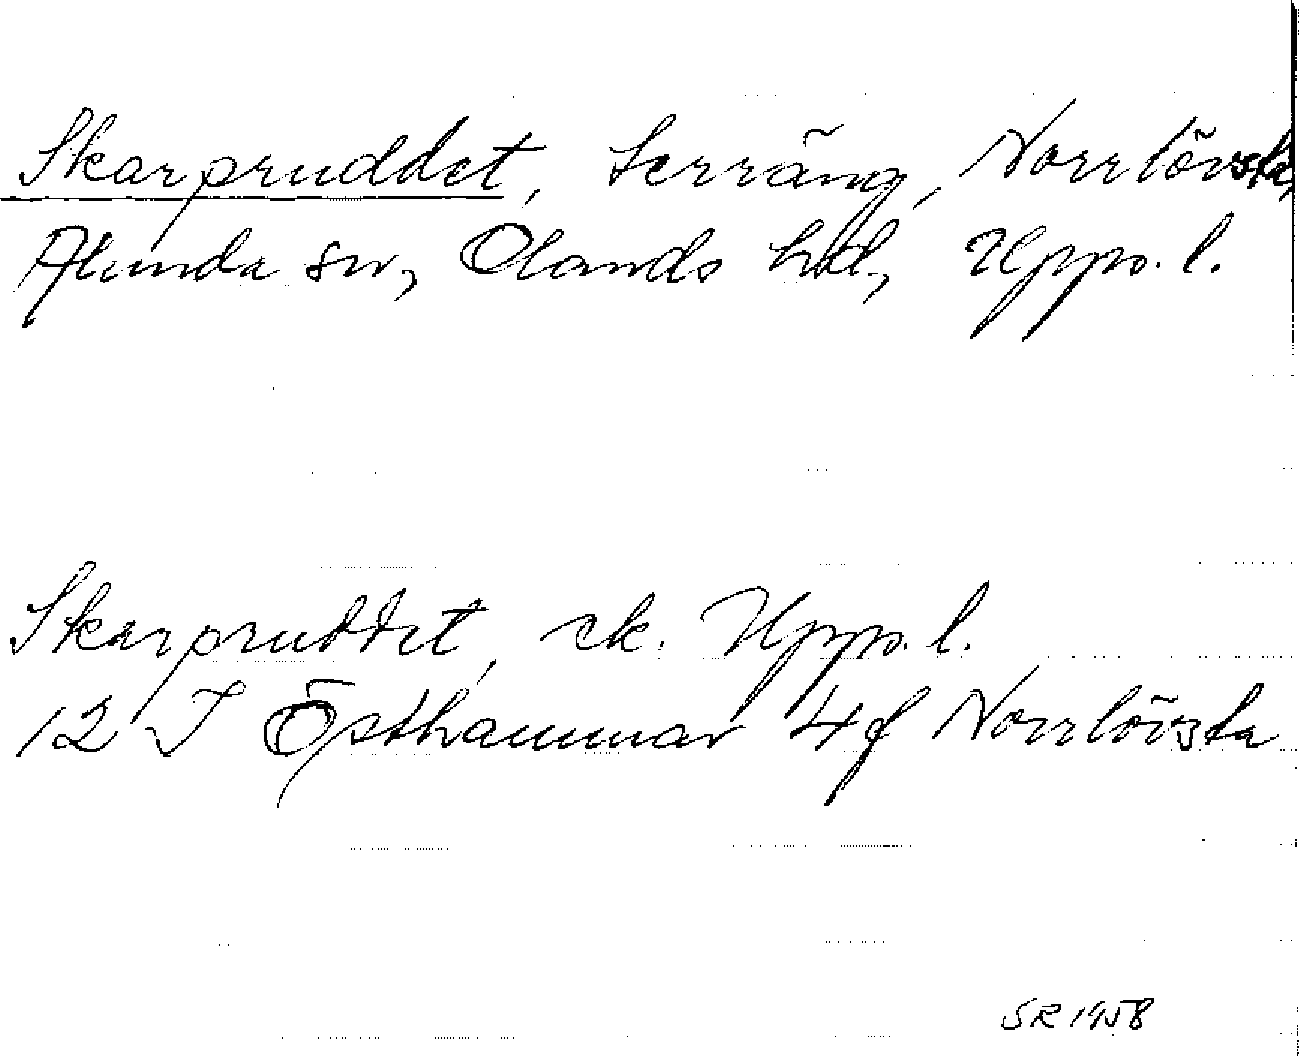 Skarpruddet, terräng, Norrlövsta,
Alunda sn, Olands hd, Upps. l.
Skarpruttet, ek. Upps. l.
12 I Östhammar 4f Norrlövsta
SR 1958